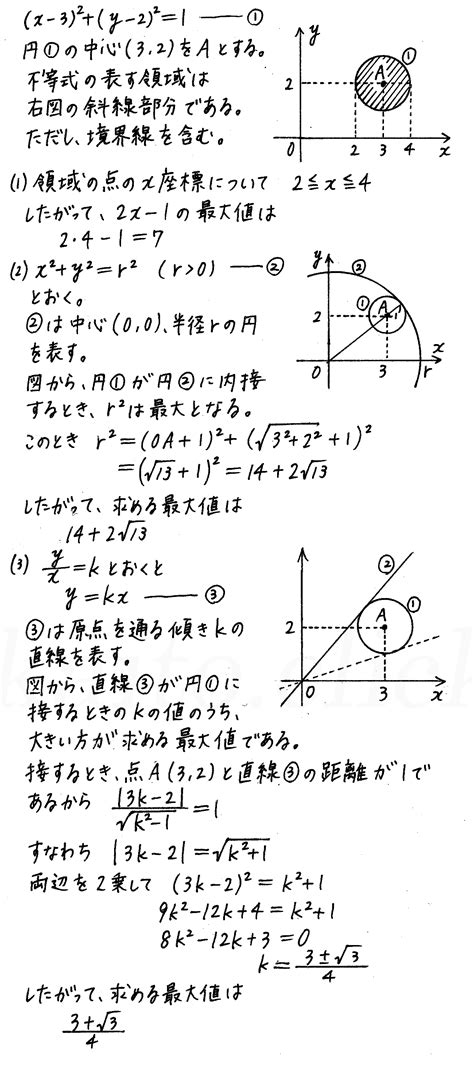 (x-3)²+(y-2)²=1 ――①
円①の中心(3,2)をAとする。
不等式の表す領域は
右図の斜線部分である。
ただし、境界線を含む。
y
①
A
2
0 2 3 4 x
(1) 領域の点のx座標について 2≦x≦4
したがって、2x-1の最大値は
2・4-1=7
(2) x²+y²=r² (r>0) ――②
とおく。
②は中心(0,0)、半径rの円
を表す。
図から、円①が円②に内接
するとき、r²は最大となる。
y
②
①
A
1
2
x
0 3 r
このとき r²=(OA+1)²+(√3²+2²+1)²
=(√13+1)²=14+2√13
したがって、求める最大値は
14+2√13
(3) y/x=kとおくと
y=kx ――③
③は原点を通る傾きkの
直線を表す。
図から、直線③が円①に
接するときのkの値のうち、
大きい方が求める最大値である。
②
①
A
2
0 3 x
接するとき、点A(3,2)と直線③の距離が1で
あるから |3k-2|/√k²-1=1
すなわち |3k-2|=√k²+1
両辺を2乗して (3k-2)²=k²+1
9k²-12k+4=k²+1
8k²-12k+3=0
k=3±√3/4
したがって、求める最大値は
3+√3/4